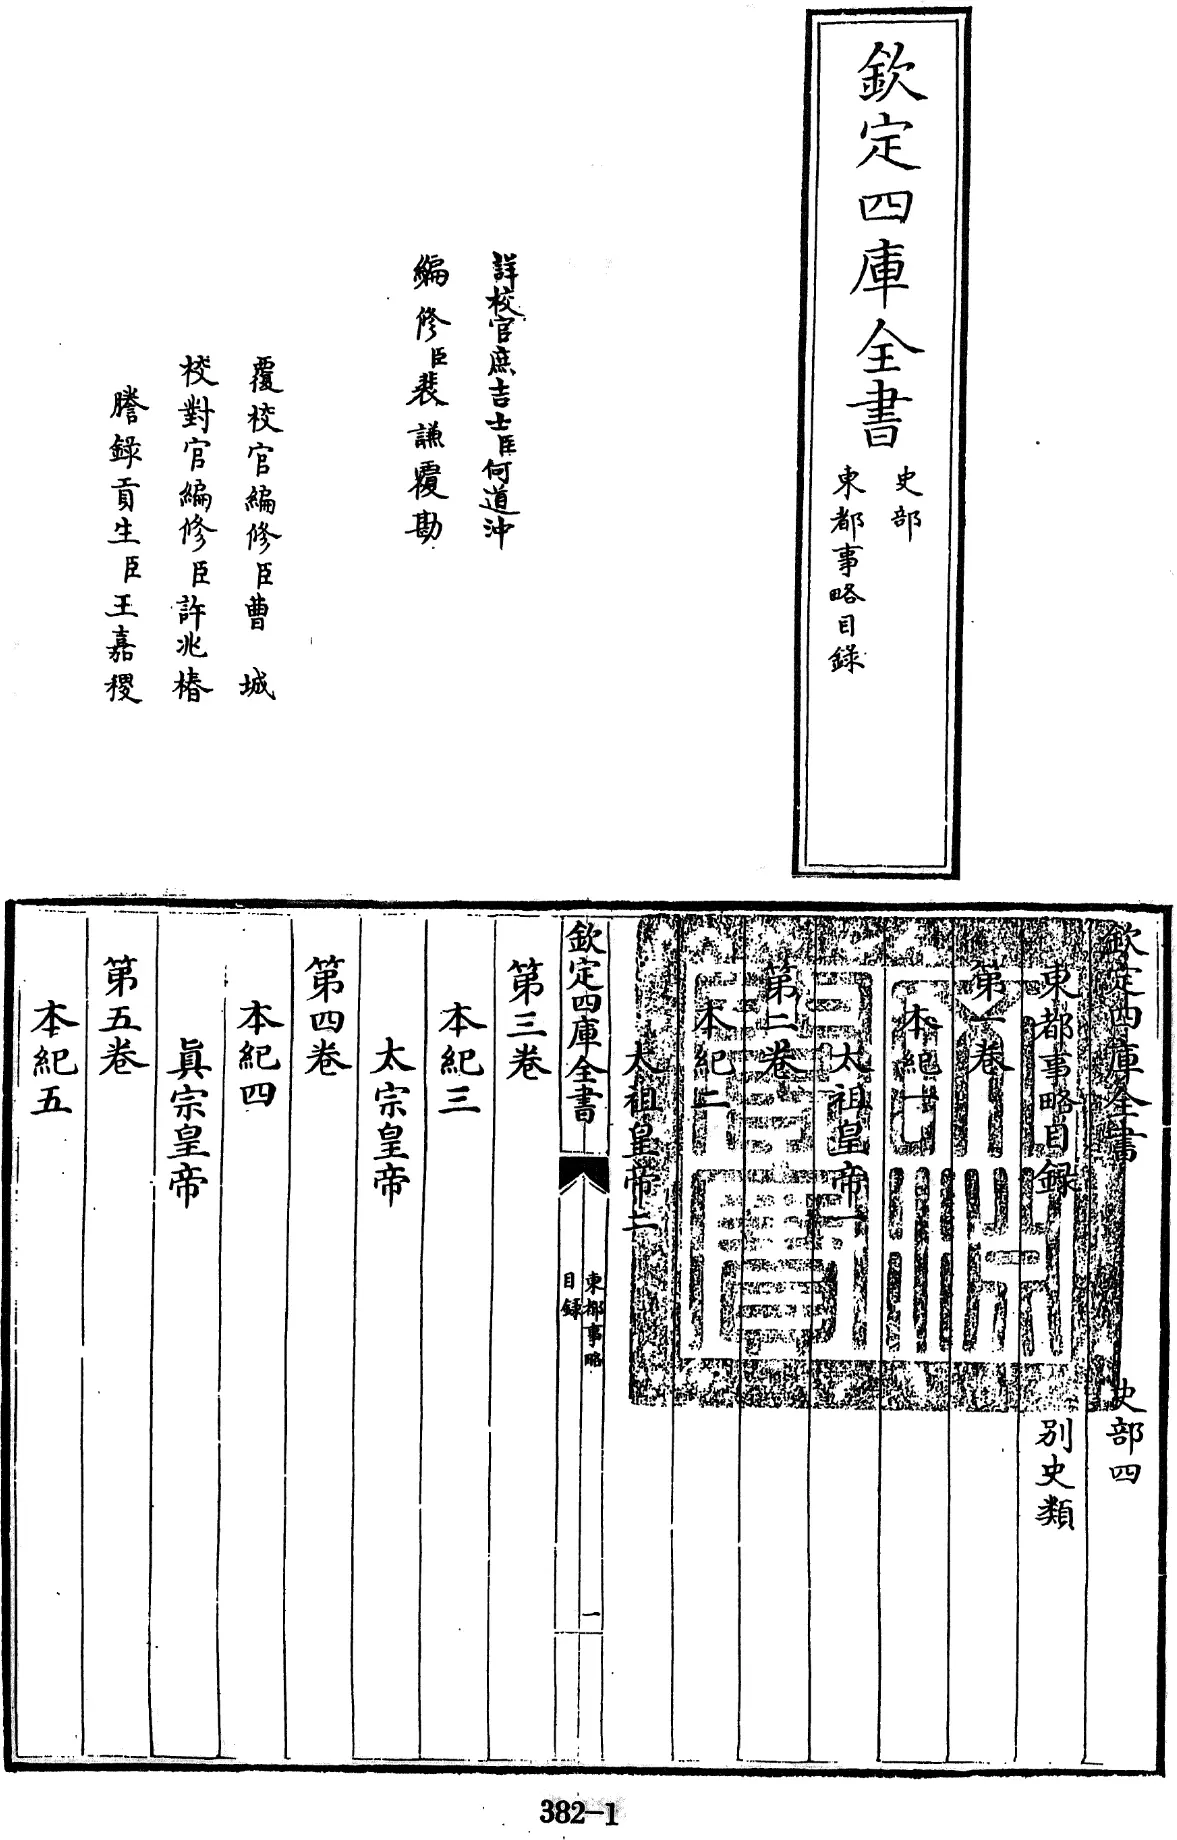 欽定四庫全書
史部
東都事略目錄
詳校官庶吉士臣何道沖
編修臣裴謙覆勘
覆校官編修臣曹城
校對官編修臣許兆椿
謄錄貢生臣王嘉稷
欽定四庫全書
史部四
東都事略目録
別史類
第一卷
本紀一
太祖皇帝一
第二卷
本紀二
太祖皇帝二
欽定四庫全書
東都事略
目録
一
第三卷
本紀三
太宗皇帝
第四卷
本紀四
眞宗皇帝
第五卷
本紀五
382-1